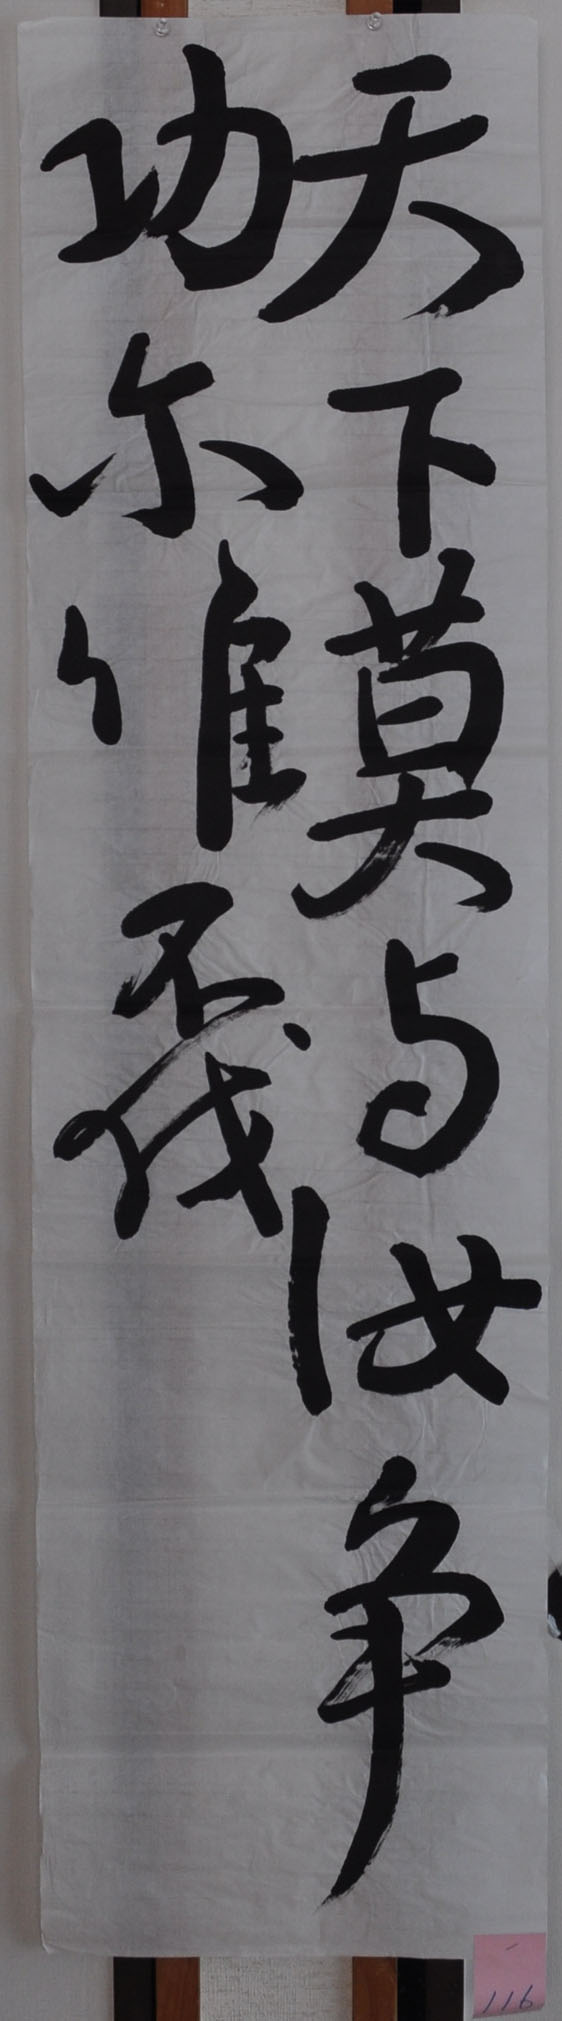 天下莫与汝争
功尓惟不伐
116